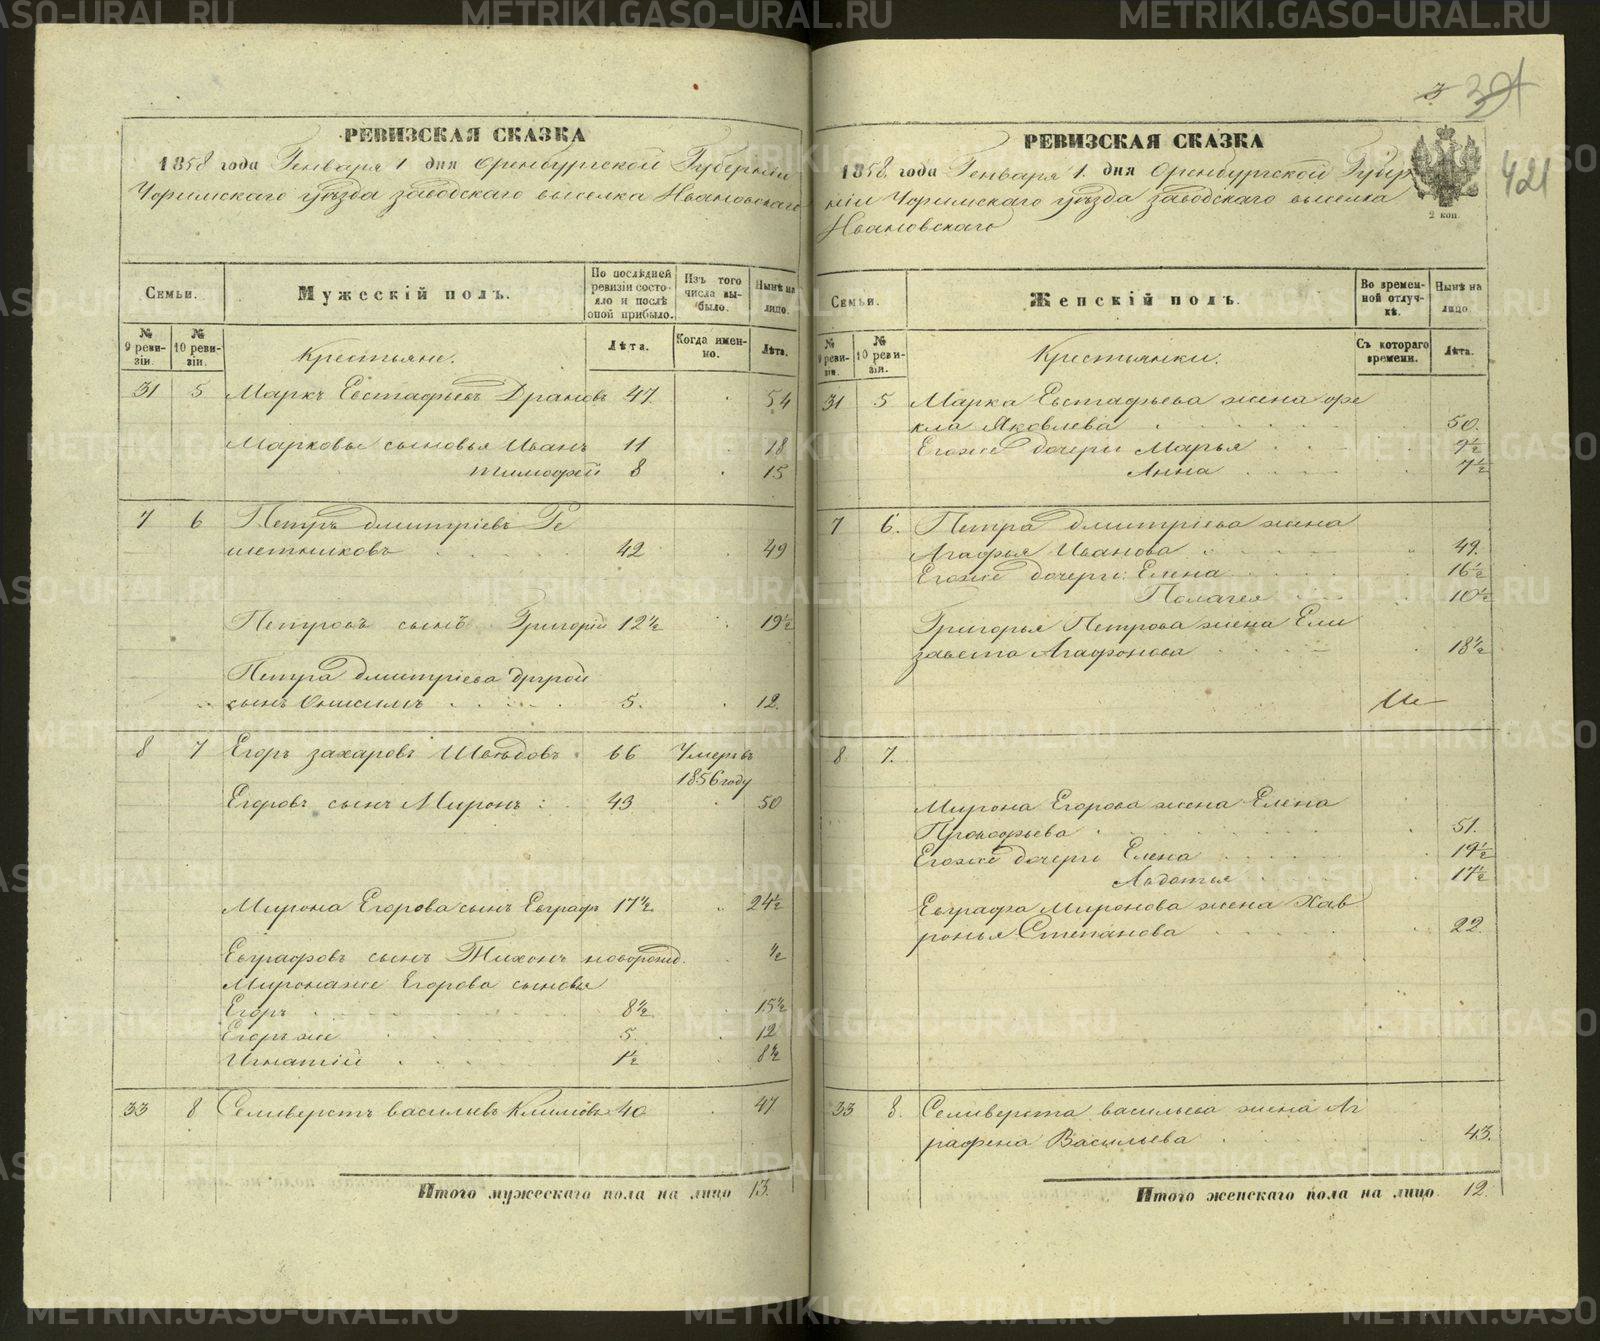 РЕВИЗСКАЯ СКАЗКА
1858 года Генваря 1 дня Оренбургской Губерніи
Уфимскаго уѣзда заводскаго выселка Ивановскаго
Семьи.
Мужескій полъ.
По послѣдней ревизіи состояло и послѣ оной прибыло.
Изъ того числа выбыло.
Нынѣ на лицо.
№ 9 ревизіи.
№ 10 ревизіи.
Крестьяне.
Лѣта.
Когда именно.
Лѣта.
31 5 Маркъ Евстафьевъ 47 54
Марковы сыновья Иванъ 11 18
Тимофей 8 15
7 6 Петръ Дмитріевъ Ре
шетниковъ 42 49
Петровъ сынъ Григорій 12½ 19½
Петра Дмитріева другой
сынъ Онисимъ 5. 12.
8 7 Егоръ Захаровъ Шведовъ 66 Умеръ въ
1856 году
Егоровъ сынъ Миронъ 43 50
Мирона Егорова сынъ Евграфъ 17½ 24½
Евграфовъ сынъ Тихонъ новорожд. ½
Миронаже Егорова сыновья
Егоръ 8½ 15½
Егоръ же 5. 12
Игнатій 1½ 8½
33 8 Селиверстъ Васильевъ Климовъ 40 47
Итого мужескаго пола на лицо 13.
3
421
РЕВИЗСКАЯ СКАЗКА
1858 года Генваря 1. дня Оренбургской Губер
ніи Уфимскаго уѣзда заводскаго выселка
Ивановскаго
2 коп.
Семьи.
Женскій полъ.
Во временной отлучкѣ.
Нынѣ на лицо
№ 9 ревизіи.
№ 10 ревизіи.
Крестьянки.
Съ котораго времени.
Лѣта.
31 5 Марка Евстафьева жена Фе
кла Яковлева 50.
Егоже дочери Марья 9½
Анна 7½
7 6. Петра Дмитріева жена
Агафья Иванова 49.
Егоже дочери: Елена 16½
Полагея 10½
Григорья Петрова жена Ели
завета Агафонова 18½
8 7.
Мирона Егорова жена Елена
Прокофьева 51.
Егоже дочери Елена 19½
Авдотья 17½
Евграфа Миронова жена Хав
ронья Степанова 22
33 8. Селиверста Васильева жена Аг
рафена Васильева 43.
Итого женскаго пола на лицо 12.
METRIKI.GASO-URAL.RU